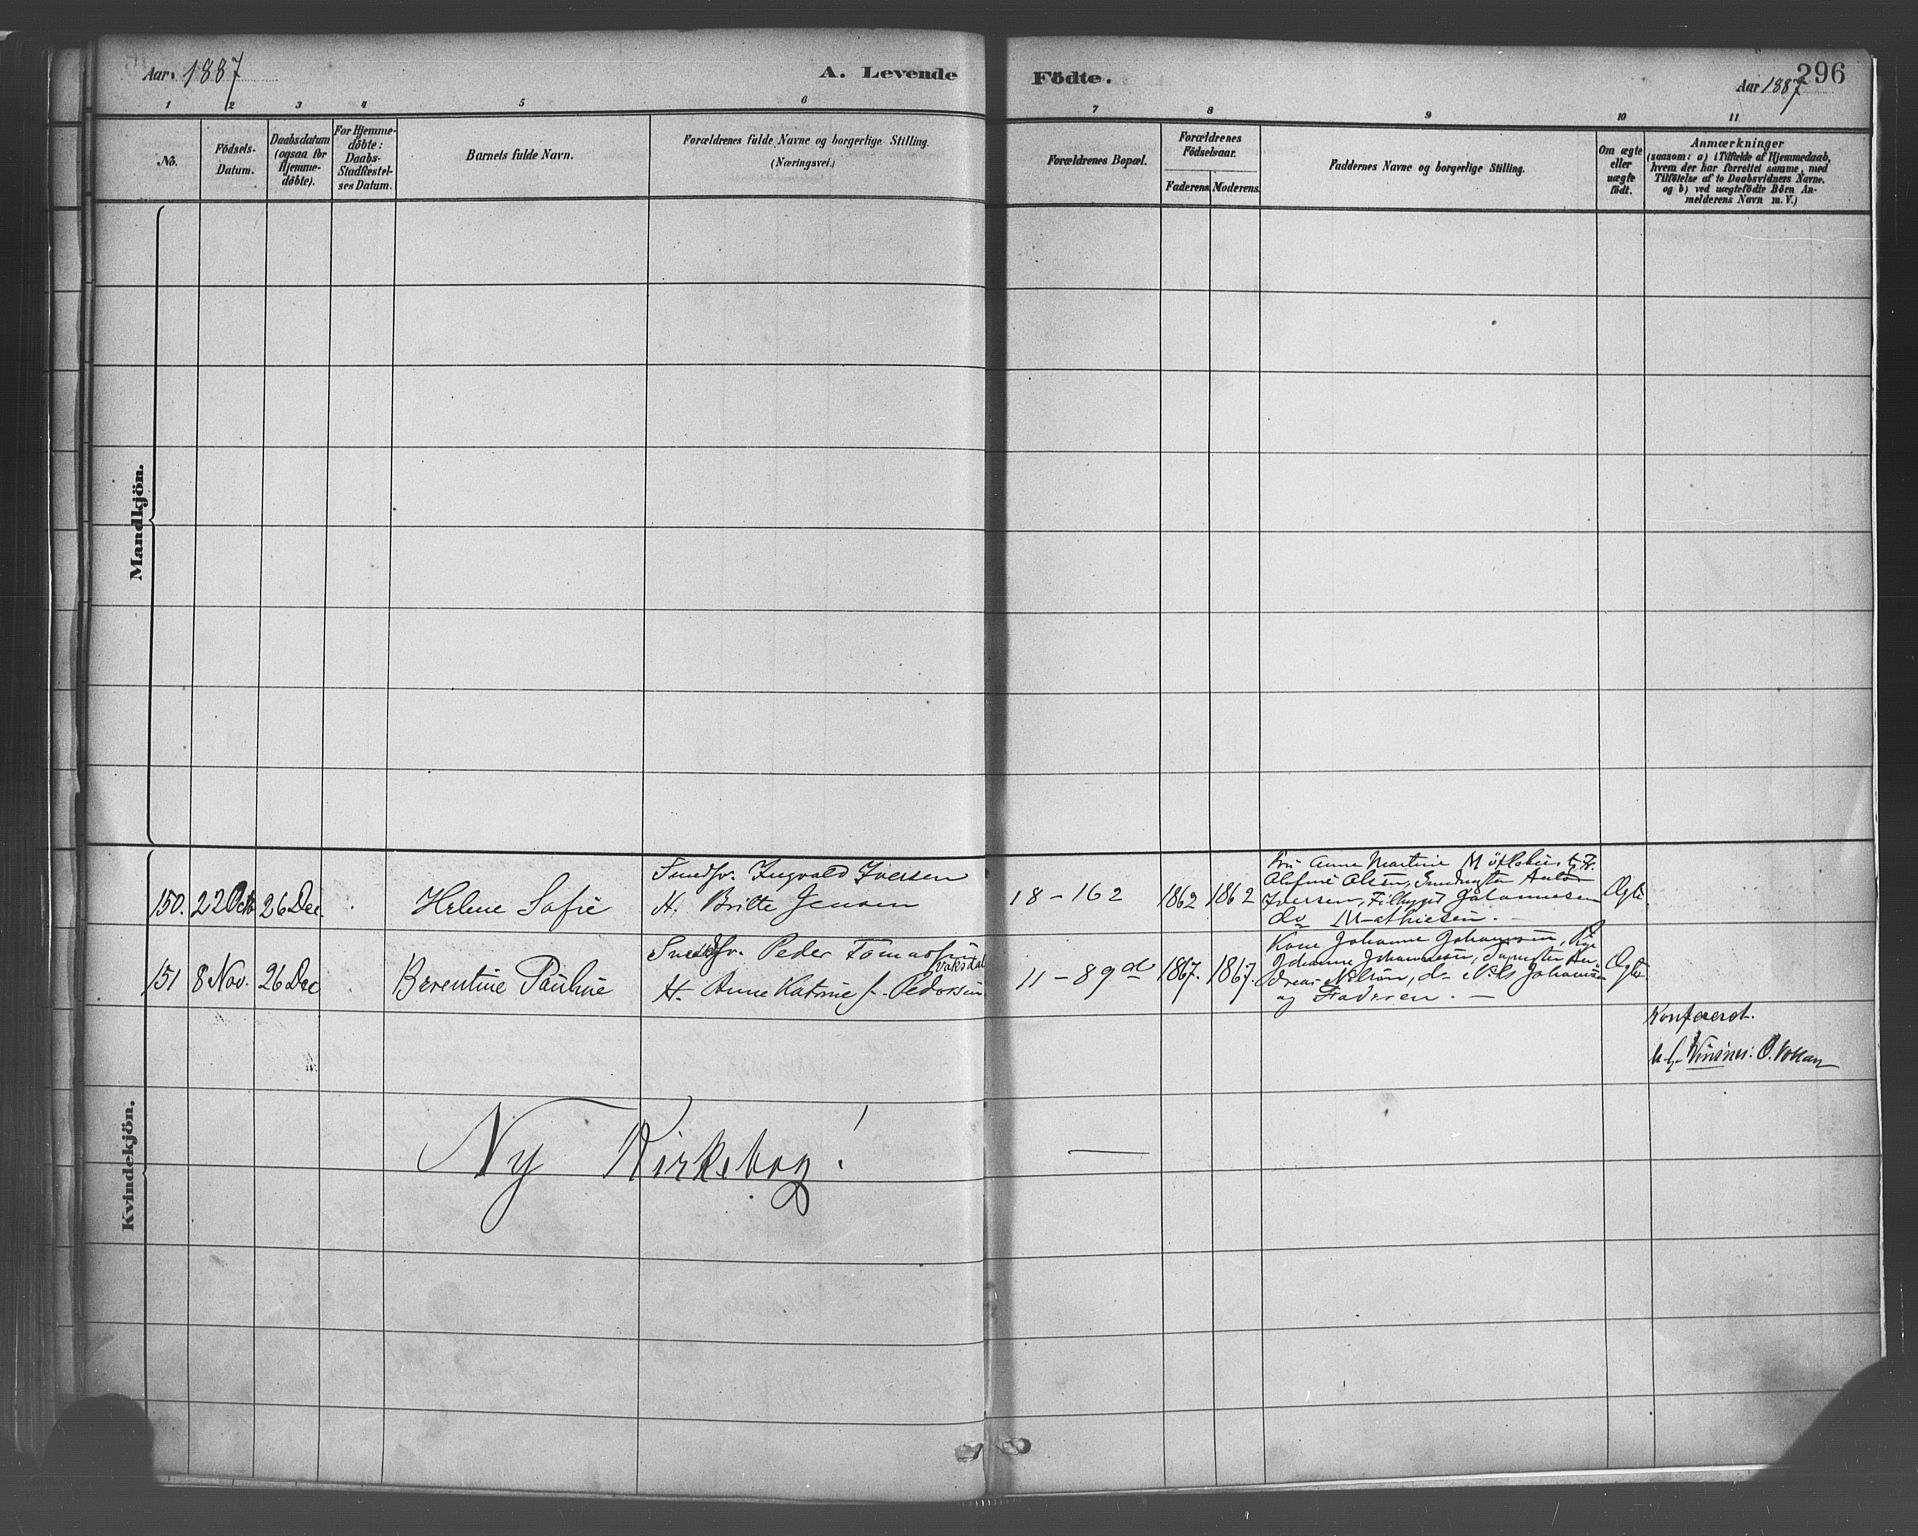 Aar 1887
A. Levende
Födte.
Aar 1887
296
1 2 3 4 5 6 7 8 9 10 11
No.
Födsels-
Datum.
Daabsdatum
(ogsaa for
Hjemme-
døbte).
For Hjemme-
døbte:
Daabs-
Stadfæstel-
ses Datum.
Barnets fulde Navn.
Forældrenes fulde Navne og borgerlige Stilling.
(Næringsvei.)
Forældrenes Bopæl.
Forældrenes
Födselsaar.
Faderens.
Moderens.
Faddernes Navne og borgerlige Stilling.
Om ægte
eller
uægte
födt.
Anmærkninger
(saasom: a) i Tilfælde af Hjemmedaab,
hvem der har forrettet samme, med
Tilföielse af to Daabsvidners Navne.
og b) ved uægtefödte Börn An-
melderens Navn m. V.)
Mandkjön.
Kvindekjön.
150. 22 Octb 26 Dec.
Helene Sofie
Smedsv. Ingvald Iversen
H. Britte Jensen
18 - 162
1862 1862
Anne Martine
Olufine Olsen, Anton
Iversen, Johannesen
do Mathiesen. -
Ægte.
151 8 Nov. 26 Dec
Berentine Pauline
Peder Tomassen
Vaksdal
H. Anne Katrine f. Pedersen
11 - 89 d
1867. 1867.
Kone Johanne Johannesen,
Johanne Johannesen, An-
dreas Nilsen, do Nils Johannesen
og Faderen. -
Ægte.
Konfereret.
Vinsnes: O.
Ny Kirkebog!